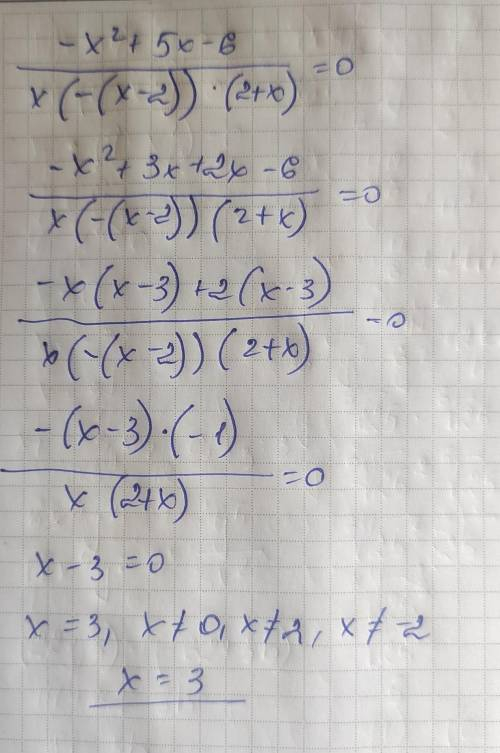 -x²+5x-6
x(-(x-2))·(2+x) =0
-x²+3x+2x-6
x(-(x-2))(2+x) =0
-x(x-3)+2(x-3)
x(-(x-2))(2+x) =0
-(x-3)·(-1)
x(2+x) =0
x-3=0
x=3, x≠0, x≠2, x≠-2
x=3